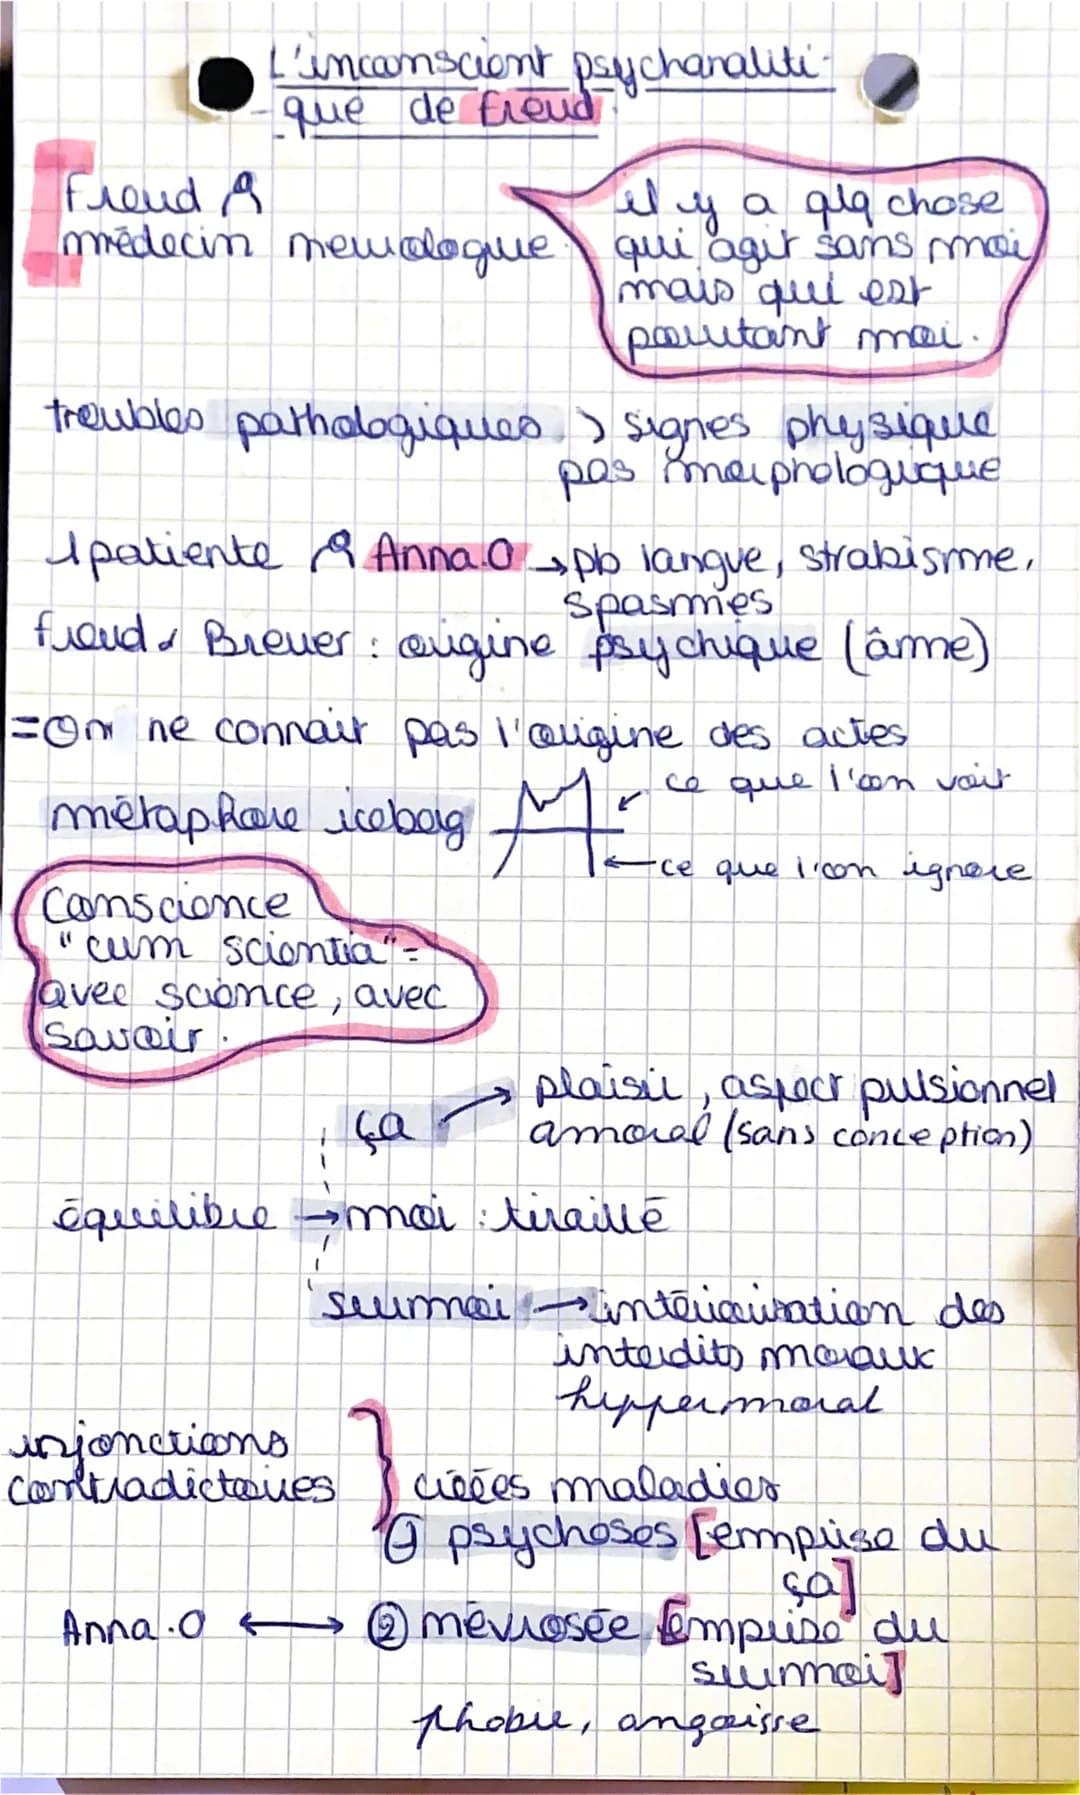 L'inconscient psychanaliti-
que de Freud.
Freud
médecin neurologue.
il y a qlq chose
qui agit sans moi
mais qui est
pourtant moi.
troubles pathologiques > signes physique
pas morphologique
1 patiente Anna.O → pb langue, strabisme,
spasmes
freud & Breuer : origine psychique (âme)
= On ne connait pas l'origine des actes
métaphore iceberg
ce que l'on voit
← ce que l'on ignore
Conscience
"cum scientia" =
avec science, avec
savoir.
ça → plaisir, aspect pulsionnel
amoral (sans conception)
équilibre → moi : tiraillé
surmoi → intériorisation des
interdits moraux
hyppermoral
injonctions
contradictoires } créées maladies
① psychoses [emprise du
ça]
Anna.O ↔ ② névrosée [emprise du
surmoi]
phobie, angoisse